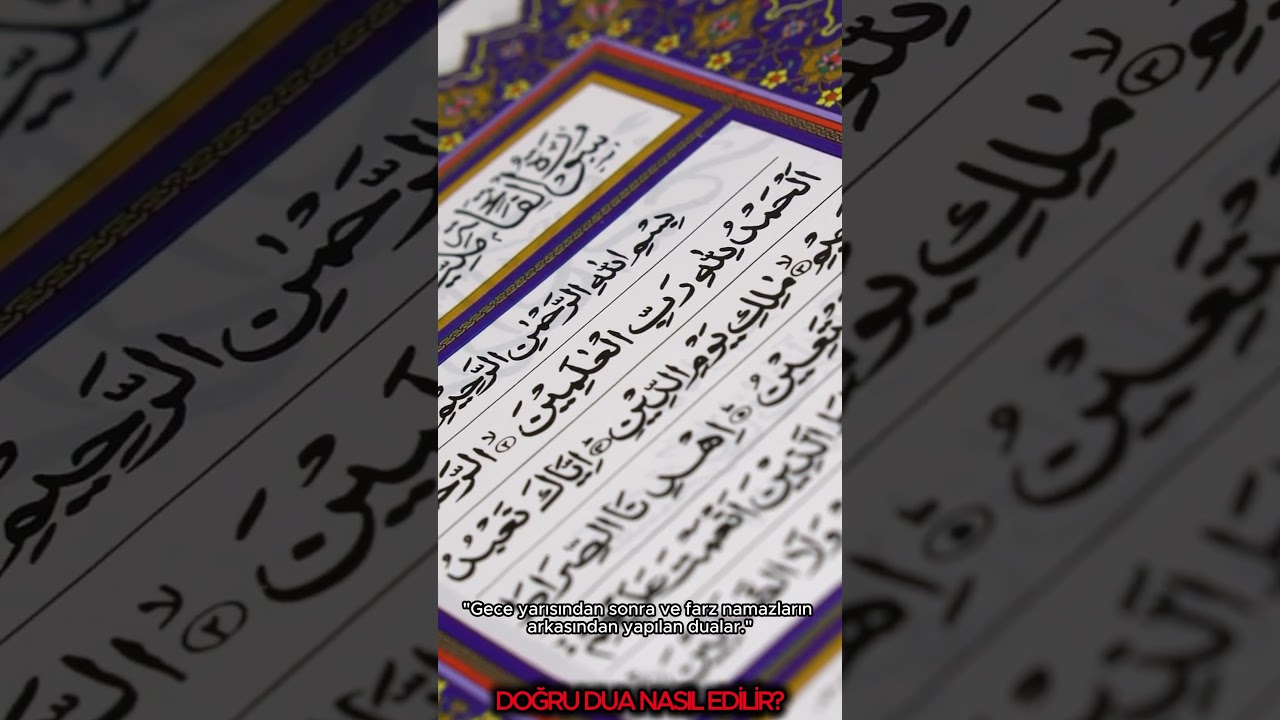 سُورَةُ الْفَاتِحَةِ
بِسْمِ اللهِ الرَّحْمٰنِ الرَّحِيمِ
اَلْحَمْدُ لِلّٰهِ رَبِّ الْعٰلَمِينَ
مٰلِكِ يَوْمِ الدِّينِ اِيَّاكَ نَعْبُدُ
اِهْدِنَا الصِّرَاطَ
الَّذِينَ اَنْعَمْتَ
وَلَا
"Gece yarısından sonra ve farz namazların
arkasından yapılan dualar."
DOĞRU DUA NASIL EDİLİR?